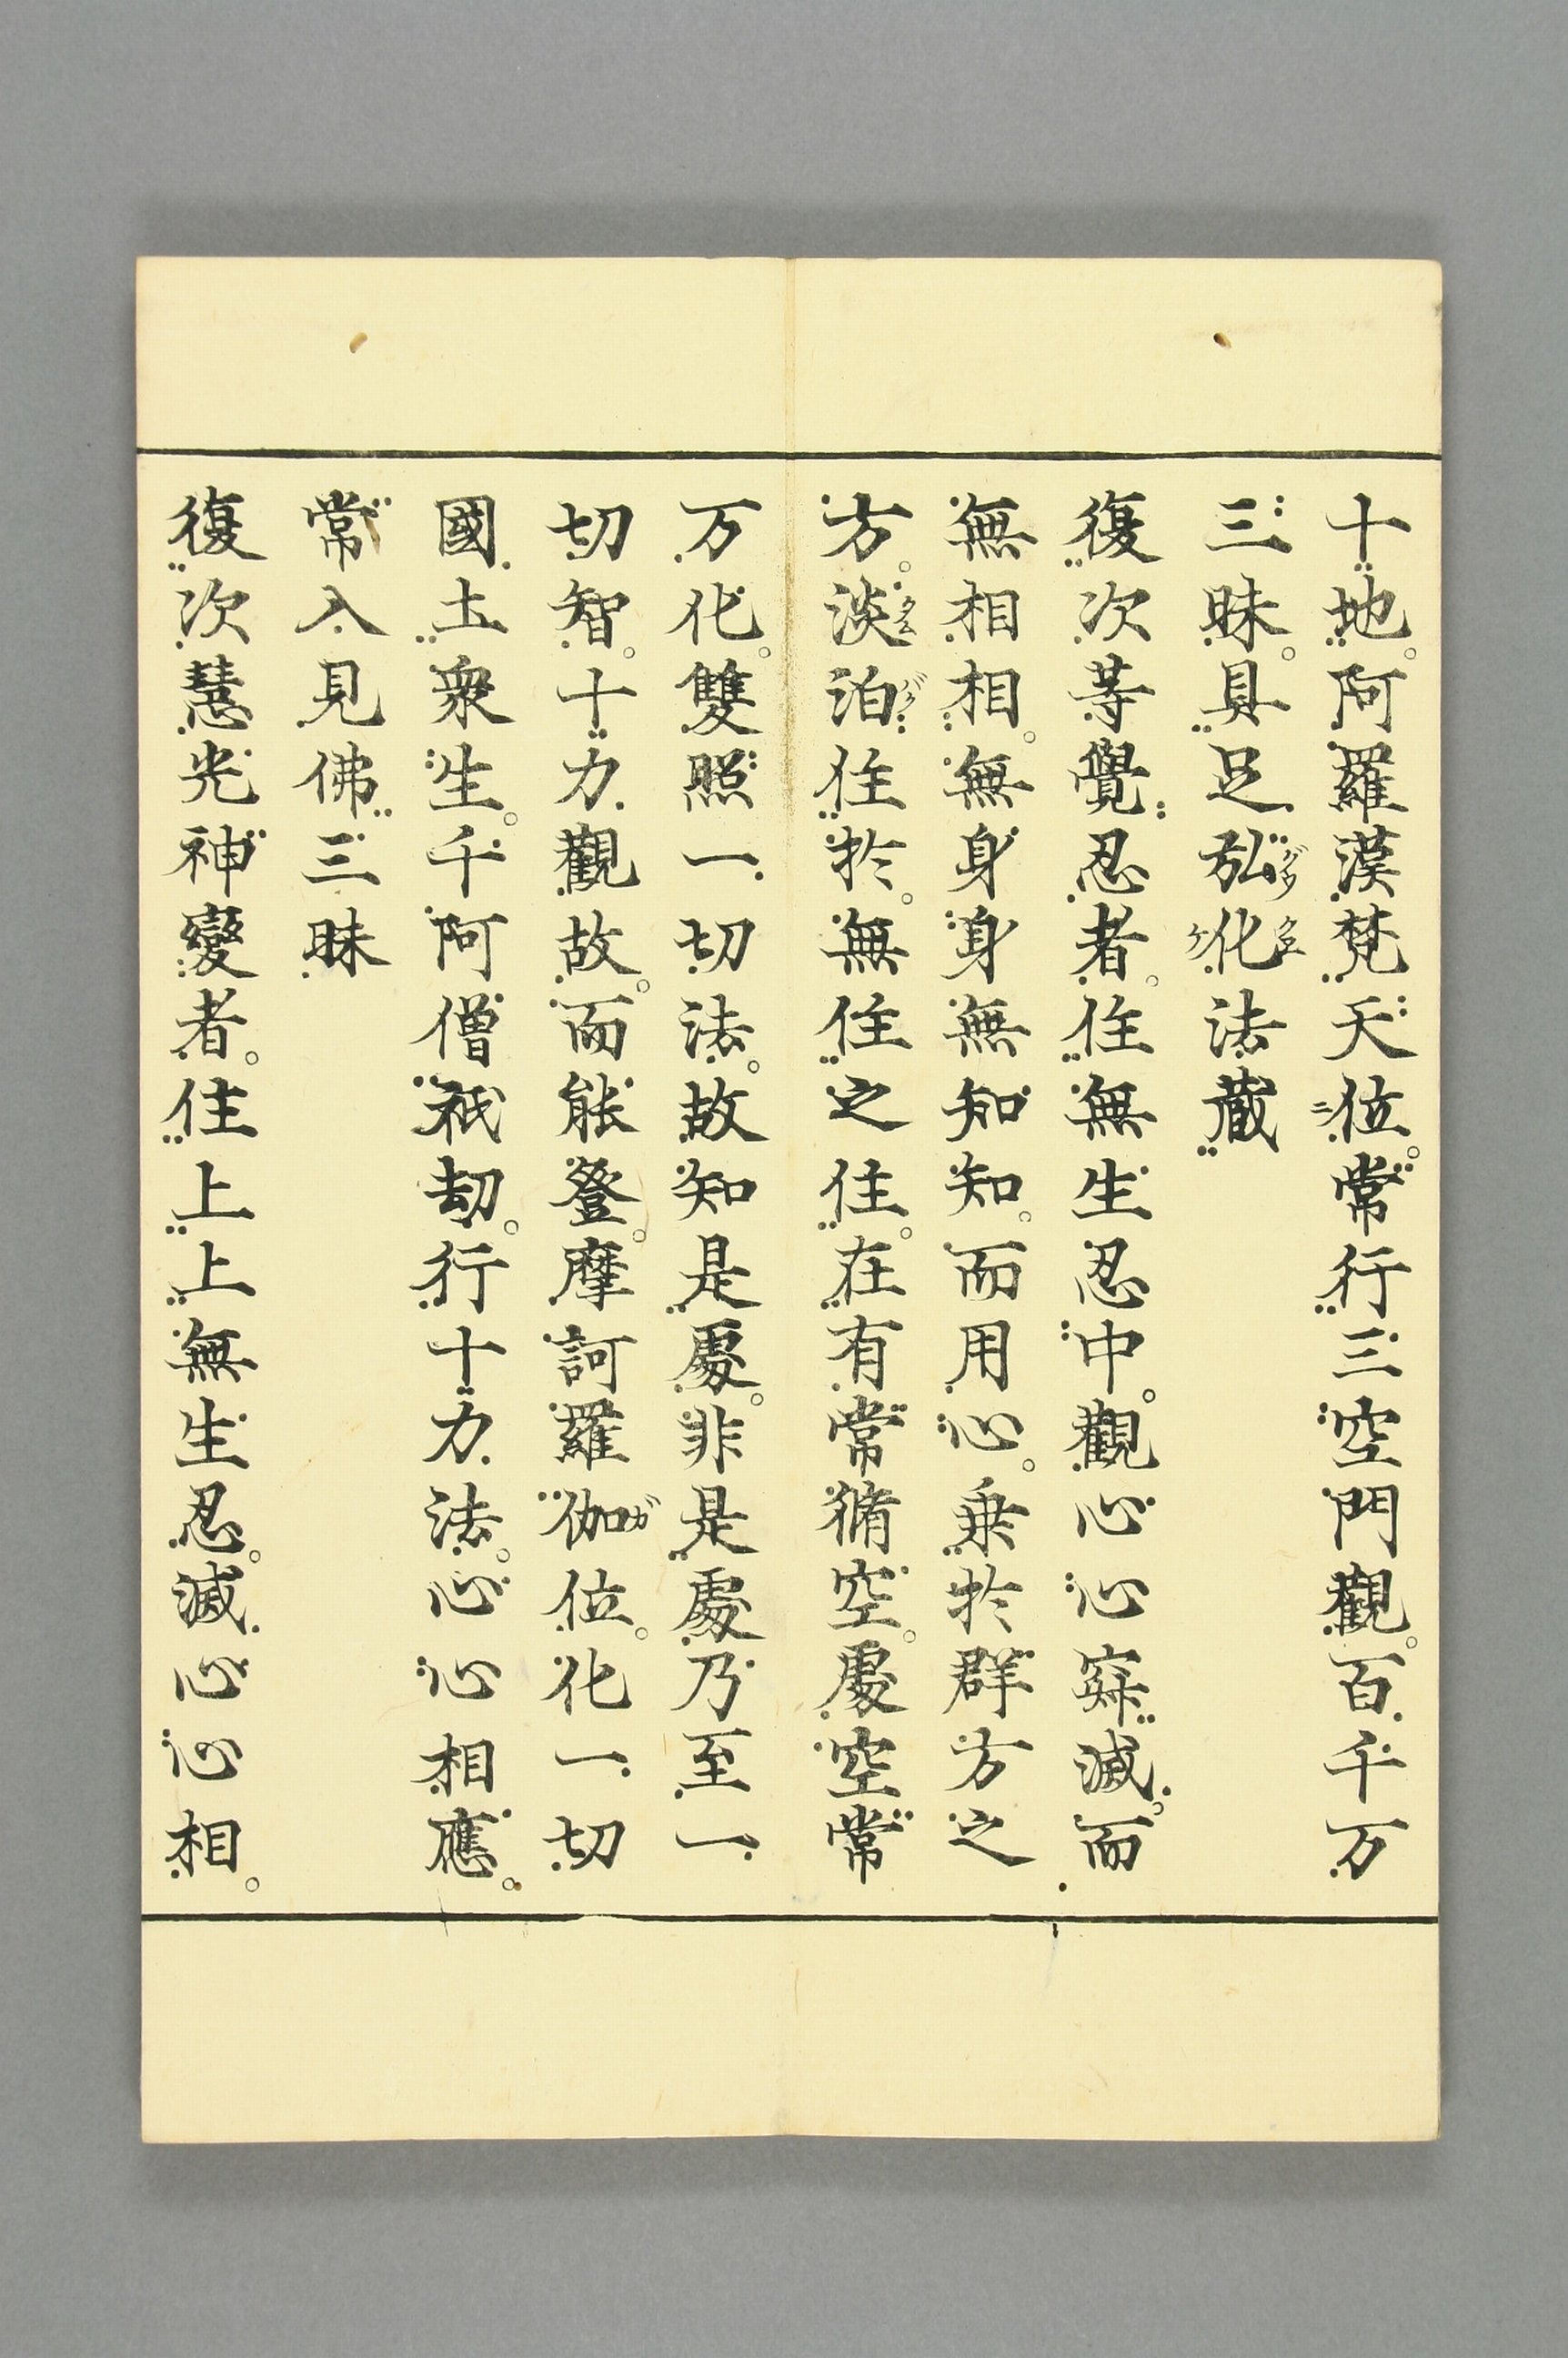 十地阿羅漢梵天位常行三空門觀百千万
三昧具足弘化法蔵
復次等覺忍者住無生忍中觀心心寂滅而
無相相無身身無知知而用心乗於群方之
方淡泊住於無住之住在有常脩空處空常
万化雙照一切法故知是處非是處乃至一
切智十力觀故而能登摩訶羅伽位化一切
國土衆生千阿僧祇劫行十力法心心相應
常入見佛三昧
復次慧光神變者住上上無生忍滅心心相